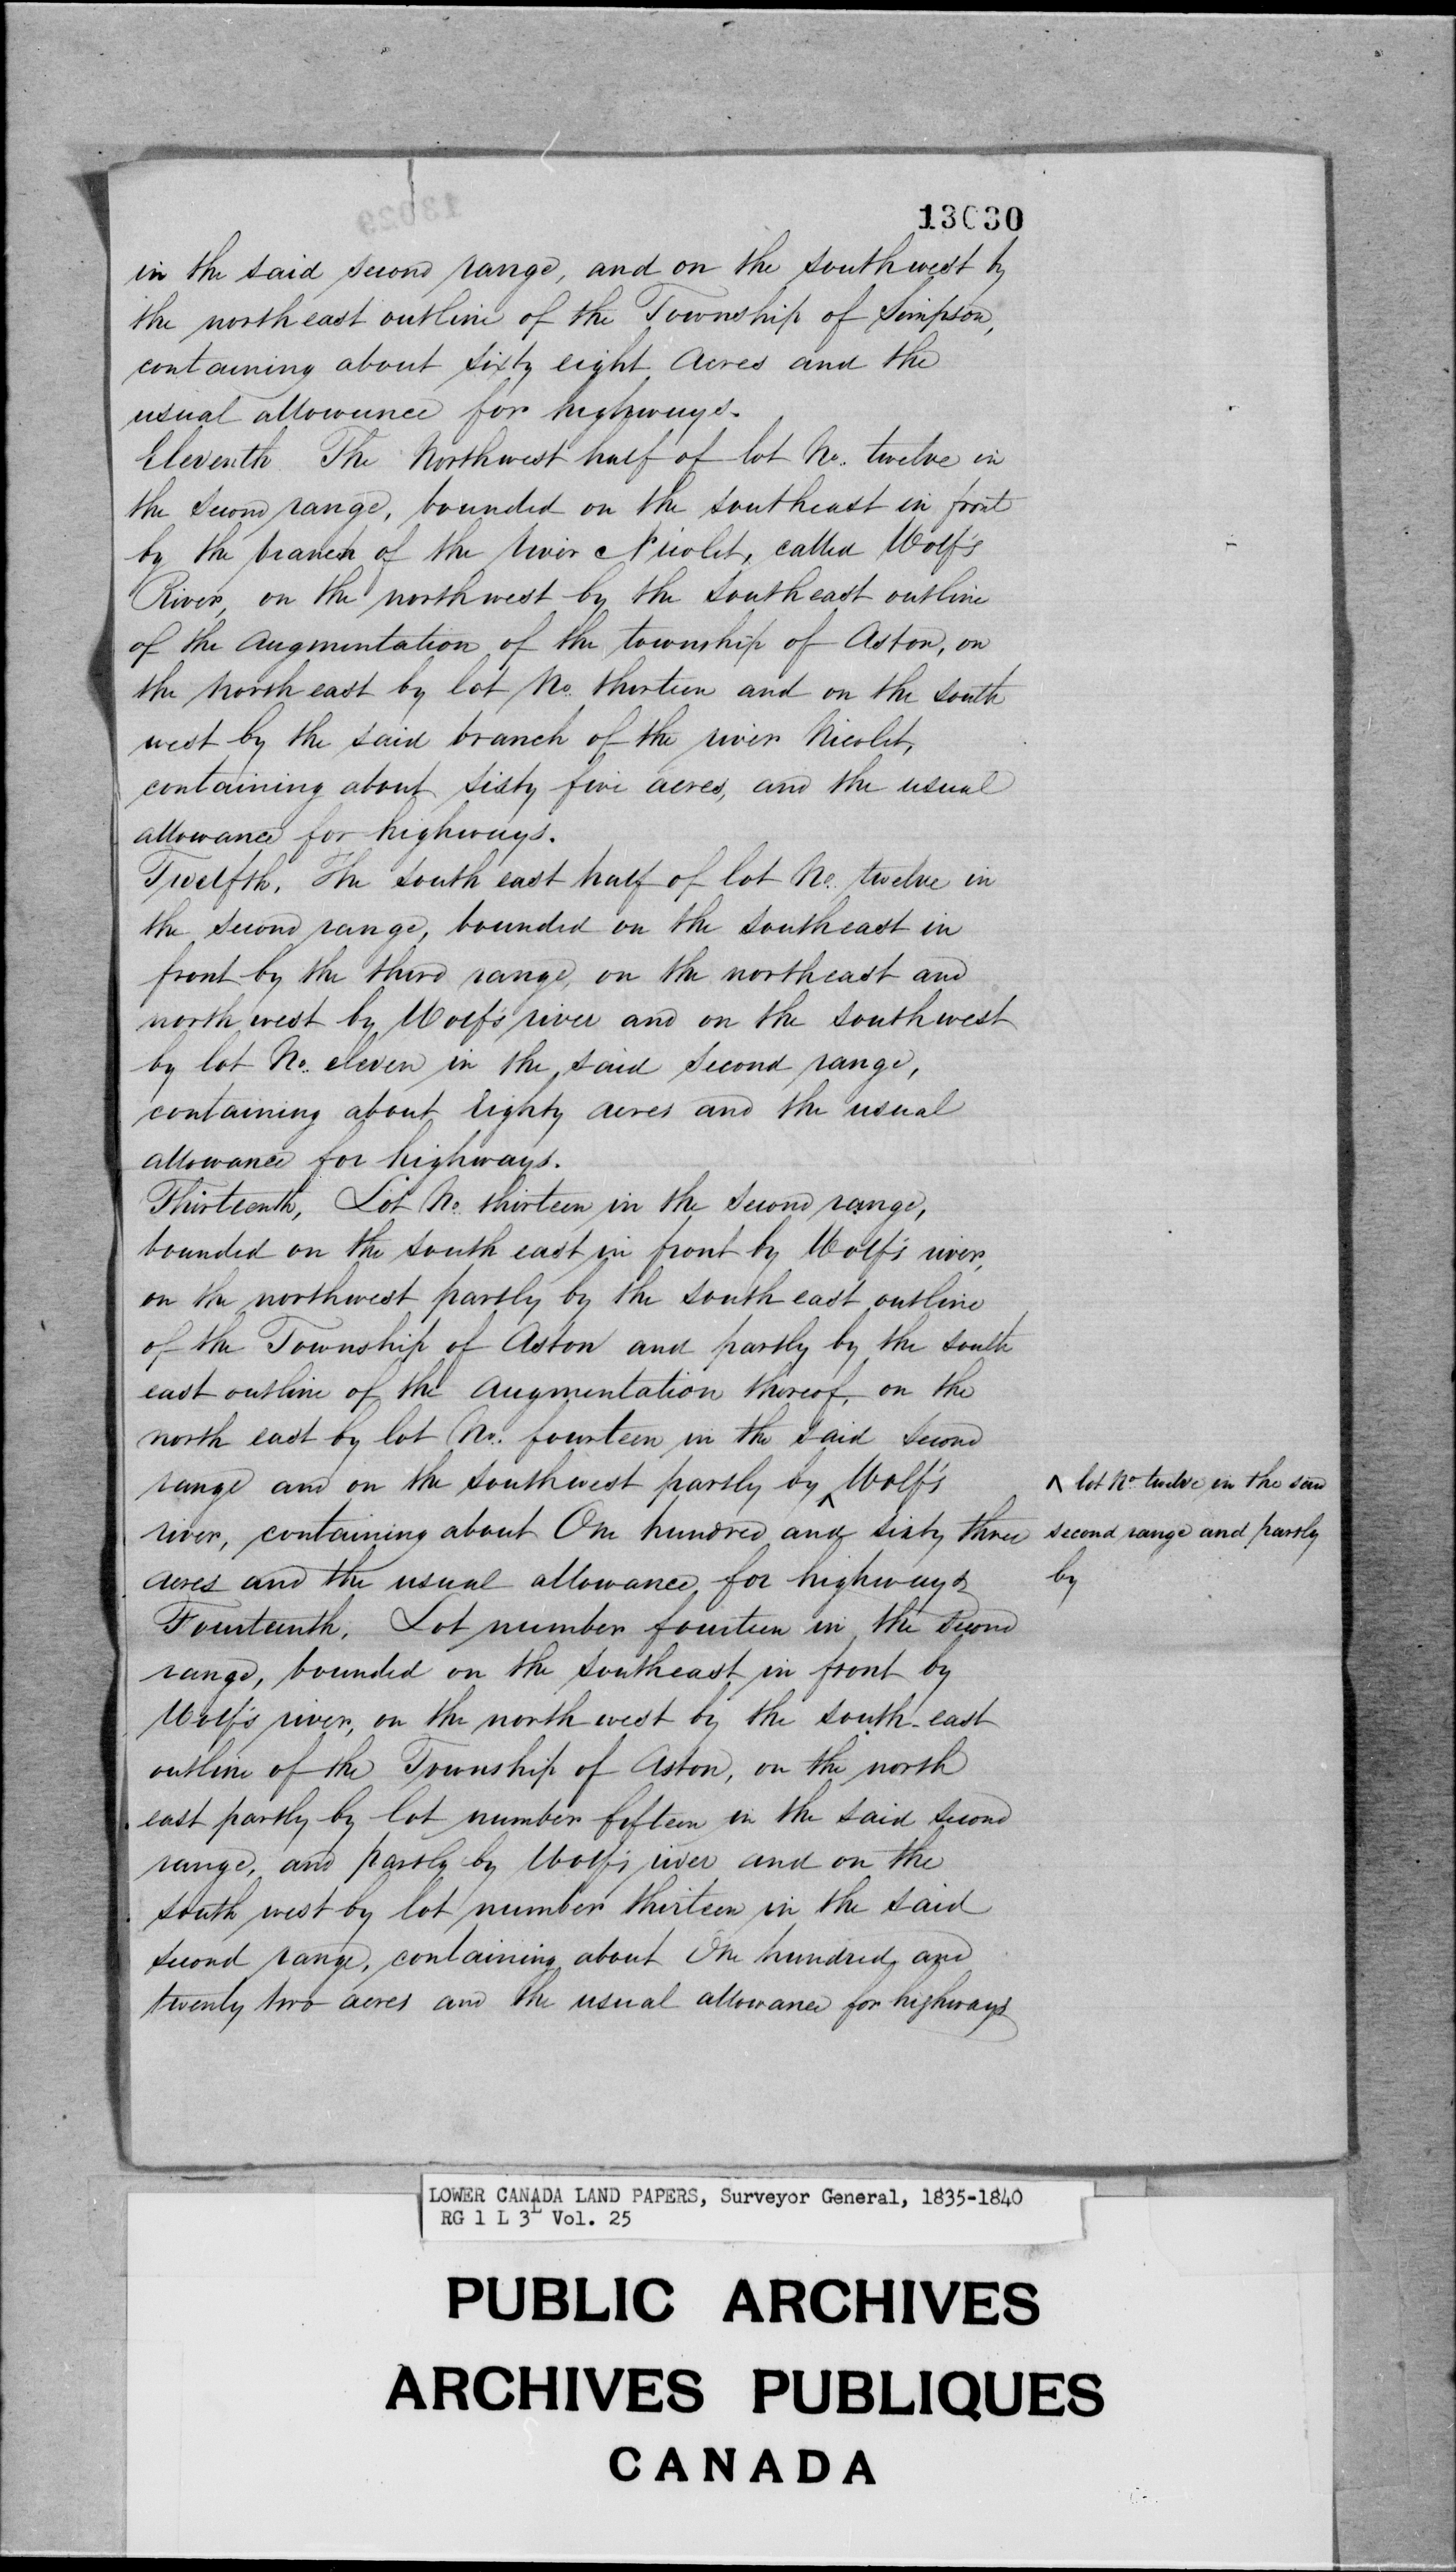 13030
in the said second range, and on the southwest by
the north east outline of the Township of Simpson,
containing about sixty eight Acres and the
usual allowance for highways.
Eleventh The Northwest half of lot No. twelve in
the second range, bounded on the southeast in front
by the branch of the river Nicolet, called Wolf's
River, on the northwest by the southeast outline
of the Augmentation of the township of Aston, on
the north east by lot No. thirteen and on the south
west by the said branch of the river Nicolet,
containing about sixty five acres, and the usual
allowance for highways.
Twelfth, The south east half of lot No. twelve in
the second range, bounded on the southeast in
front by the third range, on the northeast and
north west by Wolf's river and on the southwest
by lot No. eleven in the said second range,
containing about eighty acres and the usual
allowance for highways.
Thirteenth, Lot No. thirteen in the second range,
bounded on the south east in front by Wolf's river,
on the northwest partly by the south east outline
of the Township of Aston and partly by the south
east outline of the Augmentation thereof, on the
north east by lot No. fourteen in the said second
range and on the southwest partly by ^ Wolf's
river, containing about One hundred and sixty three
acres and the usual allowance for highways
^ lot No twelve in the said
second range and partly
by
Fourteenth, Lot number fourteen in the second
range, bounded on the southeast in front by
Wolf's river, on the north west by the south-east
outline of the Township of Aston, on the north
east partly by lot number fifteen in the said second
range, and partly by Wolf's river and on the
south west by lot number thirteen in the said
second range, containing about One hundred and
twenty two acres and the usual allowance for highways
LOWER CANADA LAND PAPERS, Surveyor General, 1835-1840
RG 1 L 3L Vol. 25
PUBLIC ARCHIVES
ARCHIVES PUBLIQUES
CANADA